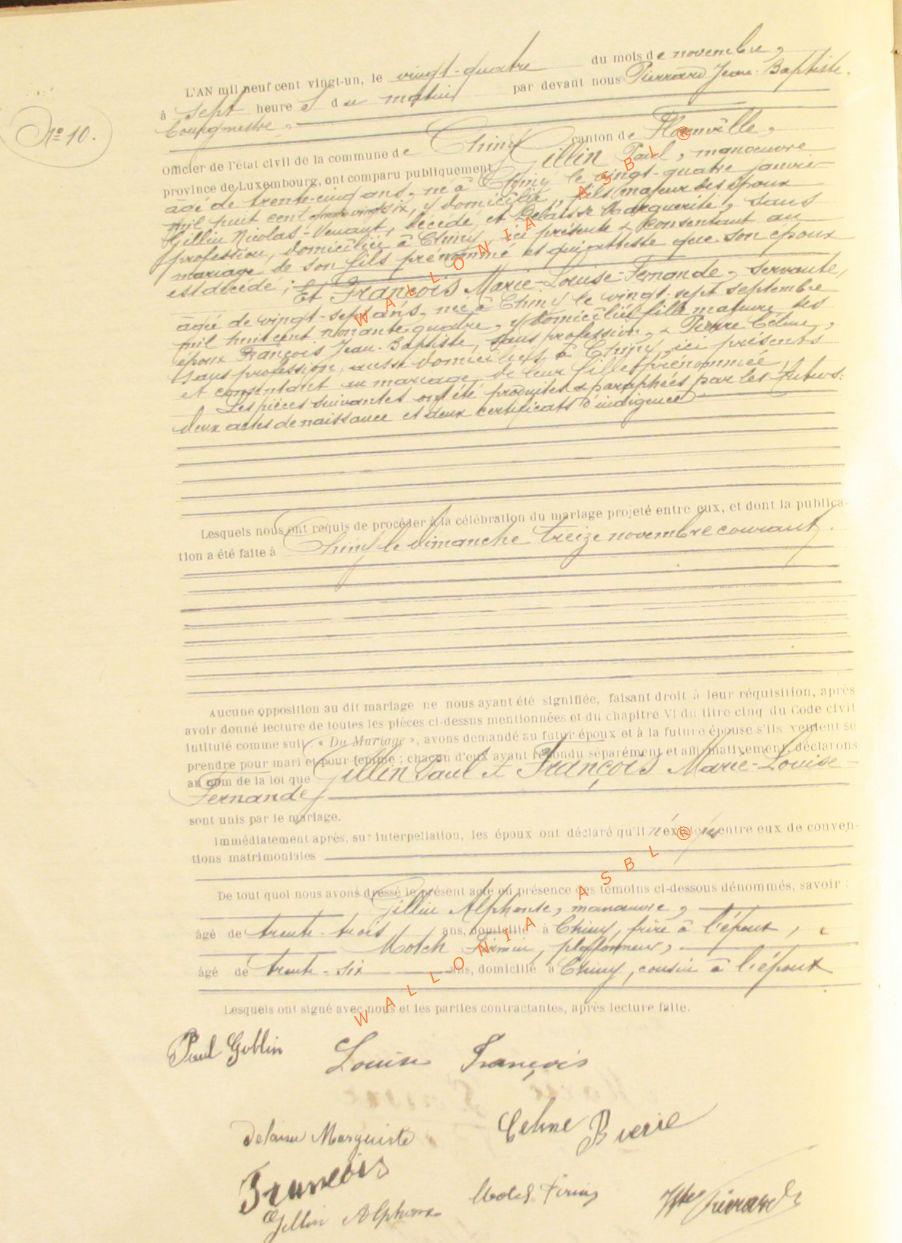 L'AN mil neuf cent vingt-un, le vingt-quatre du mois de novembre,
à sept heures du matin par devant nous Pierrard Jean-Baptiste.
bourgmestre,
N° 10.
Officier de l'état civil de la commune de Chiny canton de Florenville,
province de Luxembourg, ont comparu publiquement Gillin Paul, manœuvre
âgé de trente-cinq ans, né à Chiny le vingt-quatre janvier
mil huit cent six, y domicilié, fils majeur des époux
Gillin Nicolas-Venant, décédé, et Delaisse Marguerite, sans
profession, domiciliée à Chiny, ici présente & consentant au
mariage de son fils prénommé et qui atteste que son époux
est décédé ; Et François Marie-Louise-Fernande, servante,
âgée de vingt-sept ans, née à Chiny le vingt-sept septembre
mil huit cent nonante-quatre, y domiciliée, fille majeure des
époux François Jean-Baptiste, sans profession, & Pierre Céline,
sans profession, aussi domiciliés à Chiny, ici présents
et consentant au mariage de leur fille prénommée.
Les pièces suivantes ont été produites & paraphées par les futurs:
deux actes de naissance et deux certificats d'indigence
Lesquels nous ont requis de procéder à la célébration du mariage projeté entre eux, et dont la publica-
tion a été faite à Chiny le dimanche treize novembre courant.
Aucune opposition au dit mariage ne nous ayant été signifiée, faisant droit à leur réquisition, après
avoir donné lecture de toutes les pièces ci-dessus mentionnées et du chapitre VI du titre cinq du Code civil
intitulé comme suit « Du Mariage », avons demandé au futur époux et à la future épouse s'ils veulent se
prendre pour mari et pour femme ; chacun d'eux ayant répondu séparément et affirmativement, déclarons
au nom de la loi que Gillin Paul & François Marie-Louise-
Fernande
sont unis par le mariage.
Immédiatement après, sur interpellation, les époux ont déclaré qu'il n'existe entre eux de conven-
tions matrimoniales
De tout quoi nous avons dressé le présent acte en présence des témoins ci-dessous dénommés, savoir :
Gillin Alphonse, manœuvre,
âgé de trente-trois ans, domicilié à Chiny, frère à l'époux,
Motch Firmin, plafonneur,
âgé de trente-six ans, domicilié à Chiny, cousin à l'époux
Lesquels ont signé avec nous et les parties contractantes, après lecture faite.
Paul Gillin Louise François
Delaisse Marguerite Celine Pierre
François
Gillin Alphonse Motch Firmin Pierrard
WALLONIA ASBL ®
WALLONIA ASBL ®